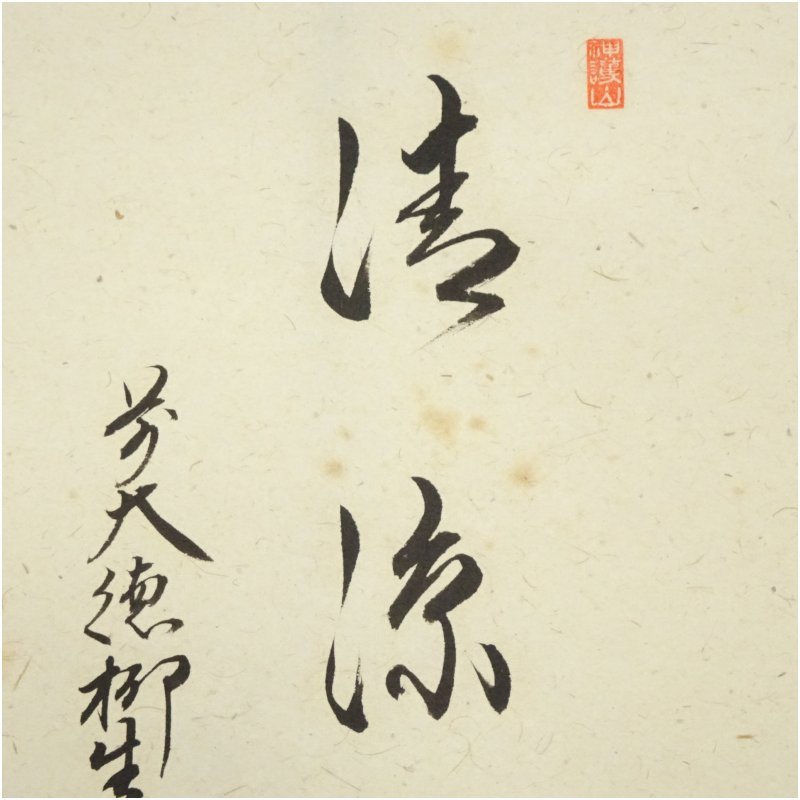 神護山
清涼
前大徳柳生